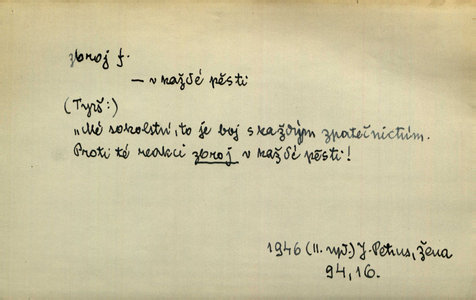 zbroj f.
— v každé pěsti
(Tyrš:)
„Mé sokolství, to je boj s každým zpátečnictvím.
Proti té reakci zbroj v každé pěsti!
1946 (II. vyd.) J. Petrus, žena
94, 16.